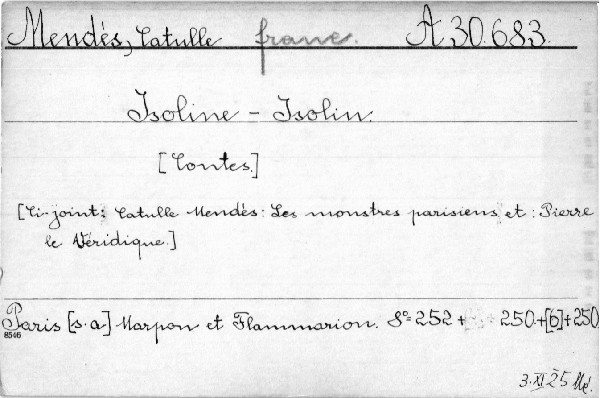 Mendés, Catulle franc. A 30.683.
Isoline - Isolin.
[Contes.]
[Ci-joint: Catulle Mendés: Les monstres parisiens et: Pierre
le Véridique.]
Paris [s.a.] Marpon et Flammarion. 8°= 252 + 250.+[6]+250
8546
3.XI 25